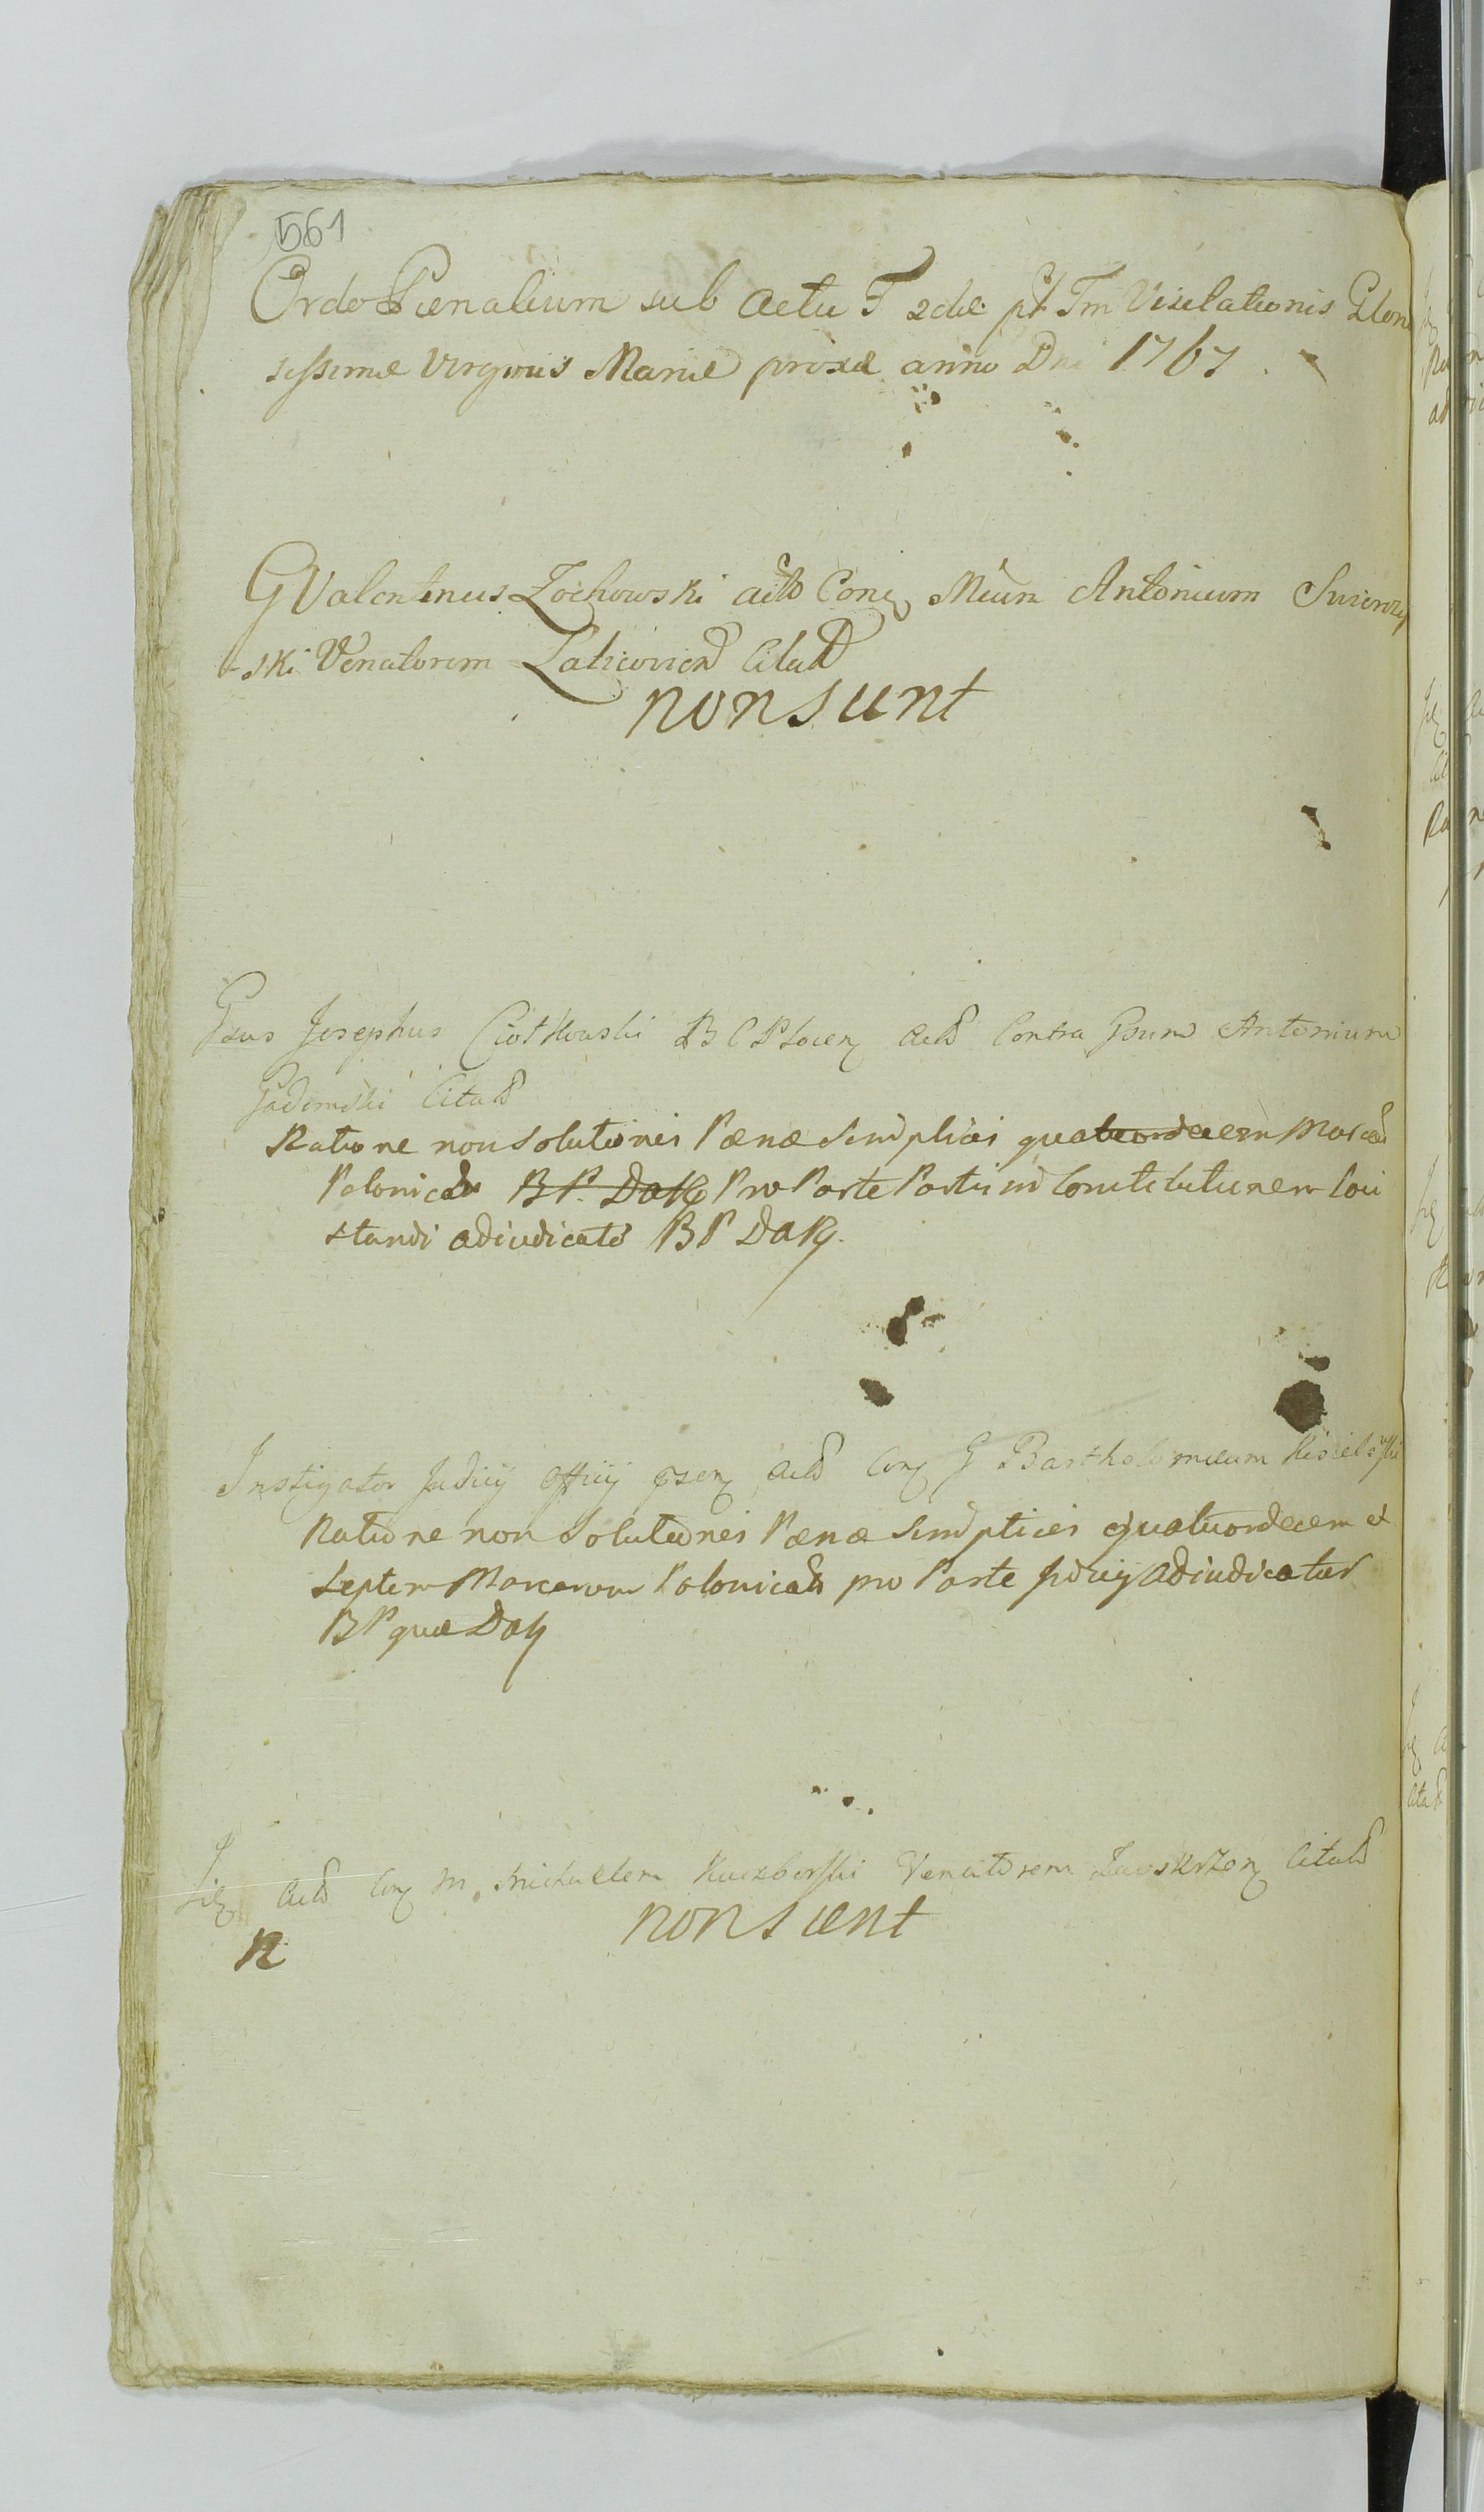 561
Ordo Pœnalium sub Actu F 2da pt Fm Visitationis Glorio
sissimæ Virginis Mariæ proxa anno Dni 1767
G Valentinus Żochowski actor Con Mcum Antonium
ski Venatorem citat
non sunt
Gsus Josephus Ciotkowski B C Plocen act Contra Gsum Antonium
Gadomski Citat
Ratione non solutionis Pænæ simplicis quatuordecem Marcar
Polonical B P DaRg Pro Parte Partis in Constitutionem Loci
standi adiudicatæ B P DaRg.
Instigator Judicij Officij pzen act Con G Bartholomæum Kisielewski
Ratione non Solutionis Pænæ simplicis quatuordecem et
septem Marcarum Polonical pro Parte Judicij adiudicatar
B P quæ DaRg
Ite act Con M Michaelem Kuczborski Venatorem Zawskrzen Citat
non sunt
R